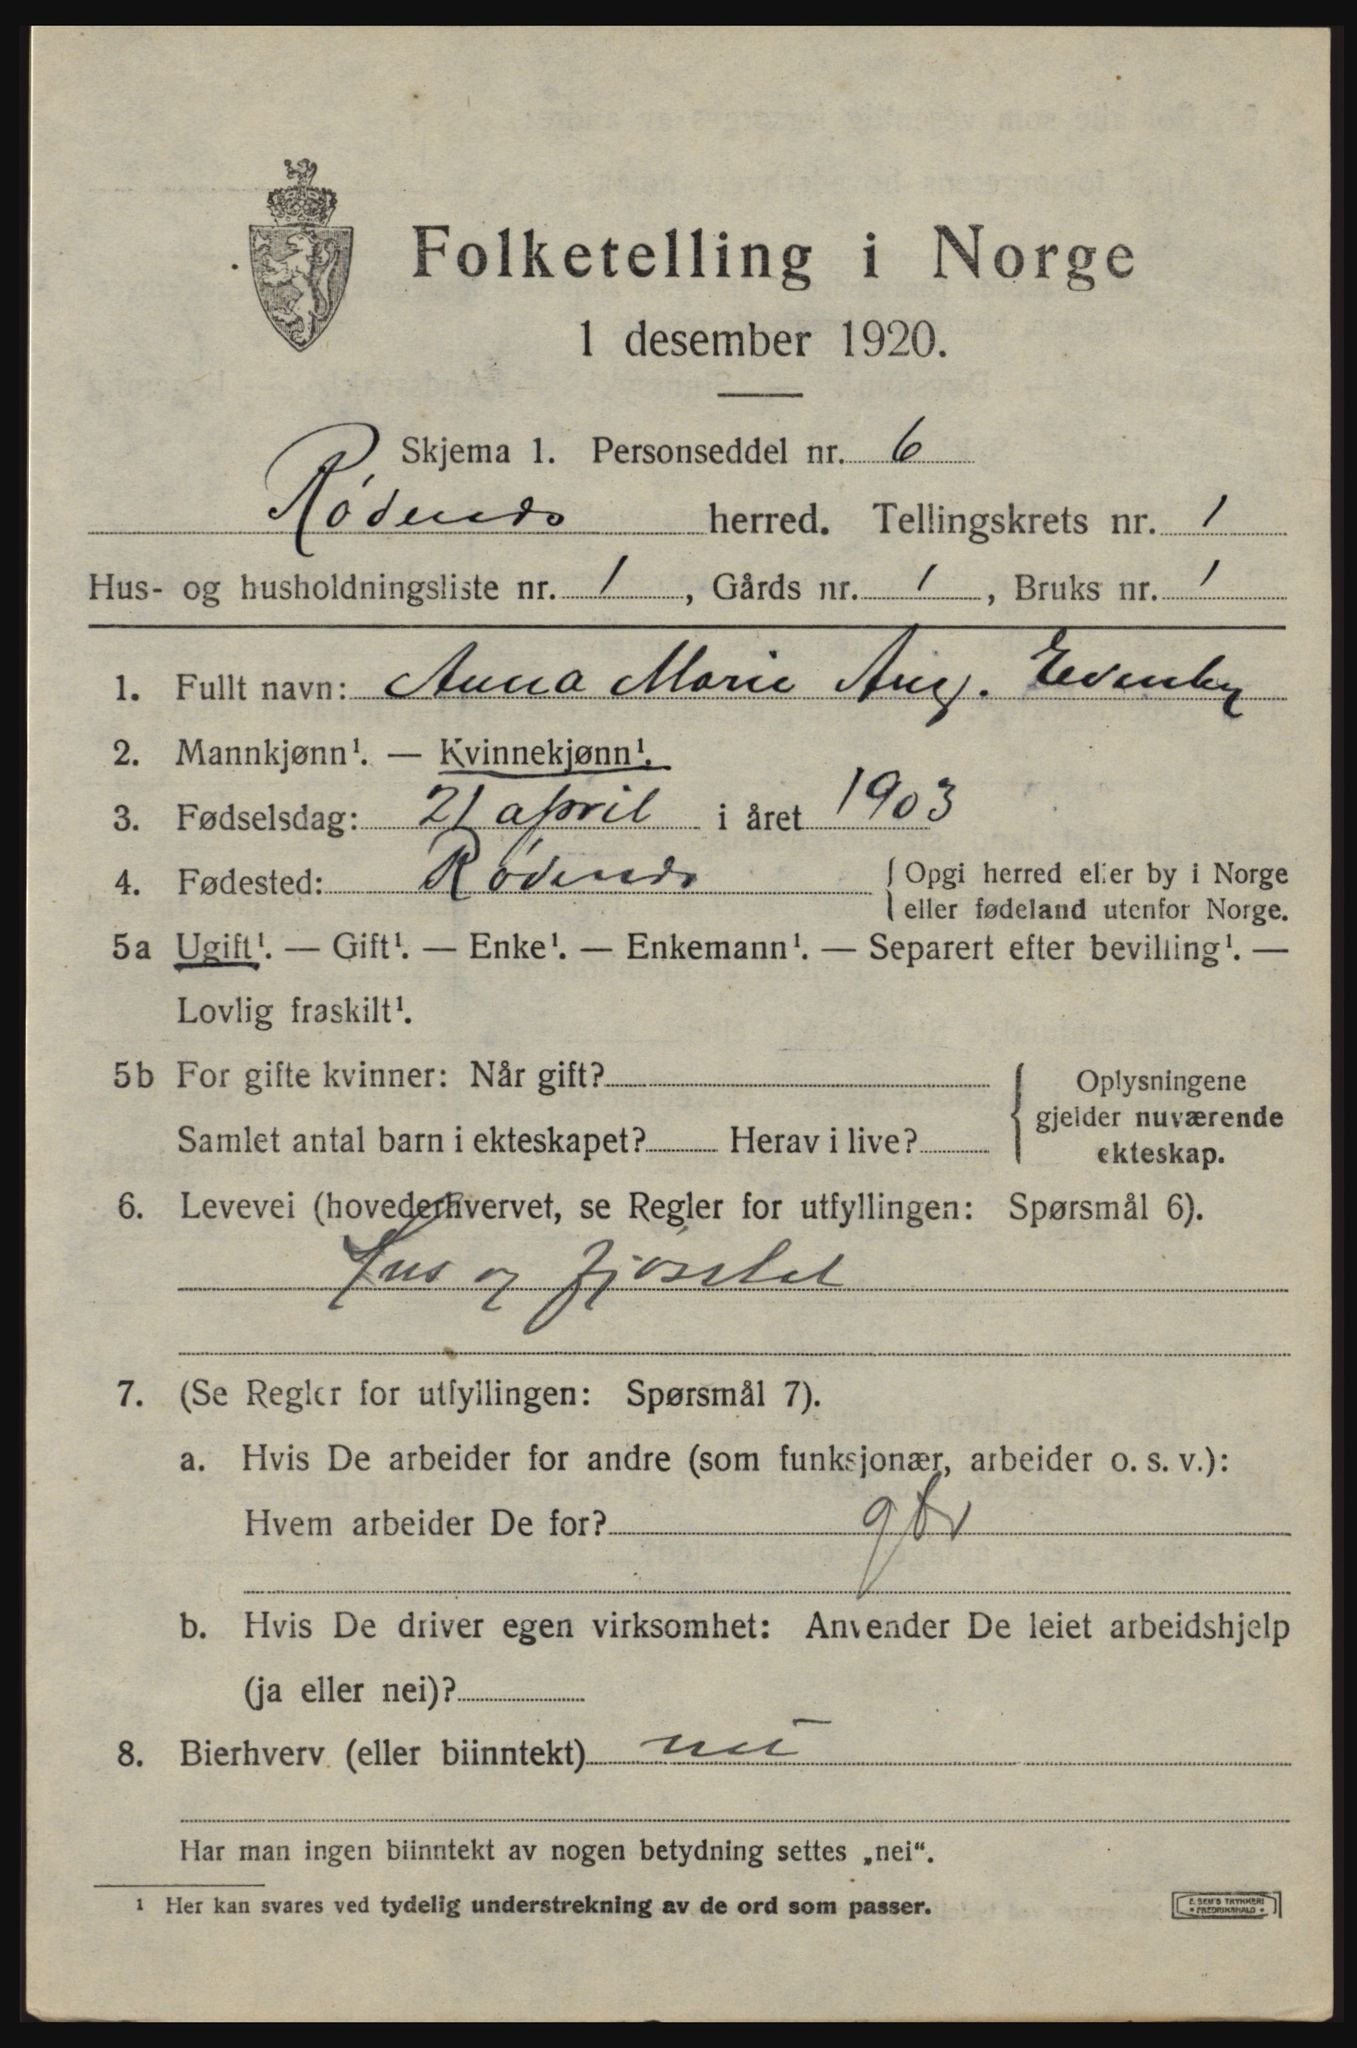 Folketelling i Norge
1 desember 1920.
Skjema 1. Personseddel nr. 6
Rødenes herred. Tellingskrets nr. 1
Hus- og husholdningsliste nr. 1, Gårds nr. 1, Bruks nr. 1
1. Fullt navn: Anna Marie Aug. Evenby
2. Mannkjønn¹. — Kvinnekjønn¹.
3. Fødselsdag: 21 april i året 1903
4. Fødested: Rødenes { Opgi herred eller by i Norge
eller fødeland utenfor Norge.
5a Ugift¹. — Gift¹. — Enke¹. — Enkemann¹. — Separert efter bevilling¹. —
Lovlig fraskilt¹.
5b For gifte kvinner: Når gift? { Oplysningene
gjelder nuværende
Samlet antal barn i ekteskapet? Herav i live? ekteskap.
6. Levevei (hovederhvervet, se Regler for utfyllingen: Spørsmål 6).
Hus og fjøsstel
7. (Se Regler for utfyllingen: Spørsmål 7).
a. Hvis De arbeider for andre (som funksjonær, arbeider o. s. v.):
Hvem arbeider De for? gbr
b. Hvis De driver egen virksomhet: Anvender De leiet arbeidshjelp
(ja eller nei)?
8. Bierhverv (eller biinntekt) nei
Har man ingen biinntekt av nogen betydning settes „nei“.
¹ Her kan svares ved tydelig understrekning av de ord som passer.
E. SEM'S TRYKKERI
• FREDRIKSHALD •